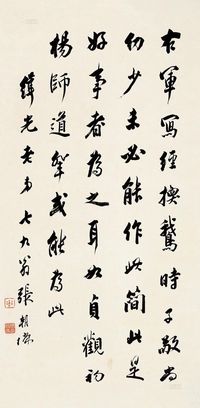 右軍寫經換鵞時子敬尚
幼少未必能作此簡此是
好事者為之耳如貞觀初
楊師道輩或能為此
緯光老弟 七九翁張